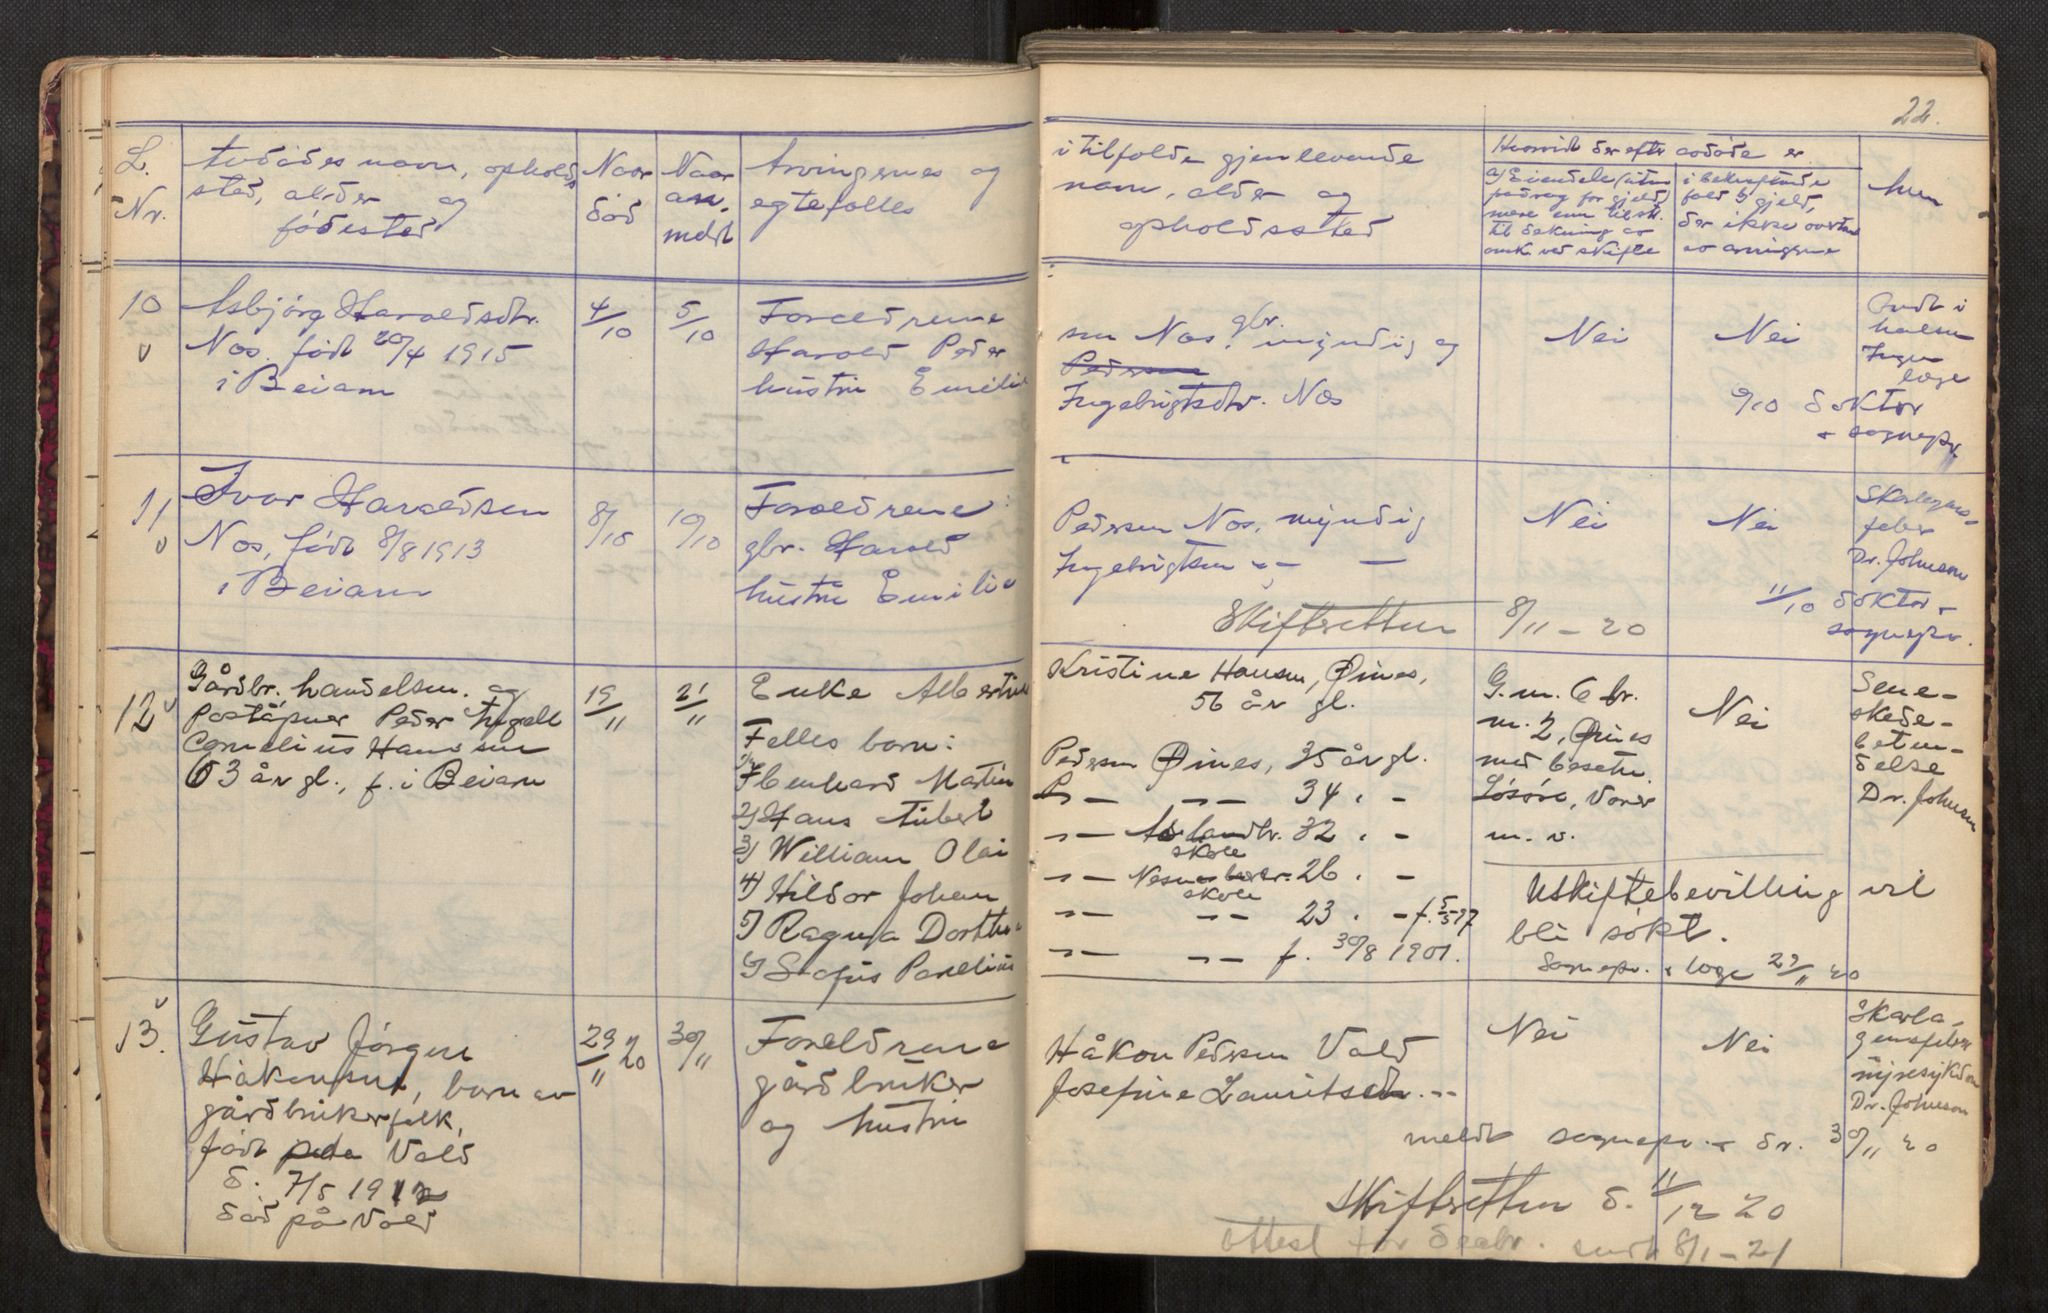 22.
L. Nr.
Avdødes navn, opholds
sted, alder og
fødested
Naar
død
Naar
an-
meldt
Arvingernes og
egtefelles
i tilfælde gjenlevende
navn, alder og
opholdssted
Hvorvidt der efter avdøde er
a) Eiendele (uten
fradrag for gjeld)
mere enn tilstr.
til dekning av
omk. ved skifte
i bekræftende
fald b) gjeld,
der ikke overtas
av arvingene
10
Asbjørg Haraldsdtr.
Nos. født 20/4 1915
i Beiarn
4/10
5/10
Forældrene
Harald Peder
hustru Emilie
sen Nos, gbr. myndig og
Pedersen
Ingebrigtsdtr. Nos
Nei
Nei
Ondt i
halsen
Ingen
læge
9/10 doktor
+ sognepr.
11
Ivar Haraldsen
Nos, født 8/8 1913
i Beiarn
8/10
10/10
Forældrene:
gbr. Harald
hustru Emilie
Pedersen Nos, myndig
Ingebrigtsen -"- —
Nei
Nei
Skarlagens-
feber
Dr. Johnson
11/10 doktor +
sognepr.
Skifteretten 8/11 - 20
12
Gårdbr. handelsm. og
poståpner Peder Ingell
Cornelius Hansen
63 år gl., f. i Beiarn
19/11
21/11
Enke Albertine
Felles barn:
1) Ebenhard Martin
2) Hans Aubert
3) William Olai
4) Hildor Johan
5) Ragna Dorthea
6) Sofus Parelius
Kristine Hansen, Øines,
56 år gl.
Pedersen Øines, 35 år gl.
-"- -"- 34 " -
-"- landbr. 32 " -
skole
-"- Nesna 26 " -
skole
-"- -"- 23 " - f. 5/5 97
-"- -"- f. 30/8 1901.
G. m. 6 br.
m. 2, Øines
med besetn.
Løsøre, Varer
m. v.
Nei
Sene-
skede-
beten-
delse
Dr. Johnson
Uskiftebevilling vil
bli søkt.
Sognepr. + læge 23/11 20
13.
Gustav Jørgen
Håkonsen, barn av
gårdbrukerfolk,
født Vold
d. 7/5 1912
død på Vold
23/11 20
30/11
Foreldrene
gårdbruker
og hustru
Håkon Pedersen Vold
Josefine Lauritsdtr. -"-
Nei
Nei
Skarla-
gensfeber
nyresykdom
Dr. Johnson
meldt sognepr. + dr. 30/11 20
Skifteretten d. 11/12 20
Attest for sendt 8/1 - 21